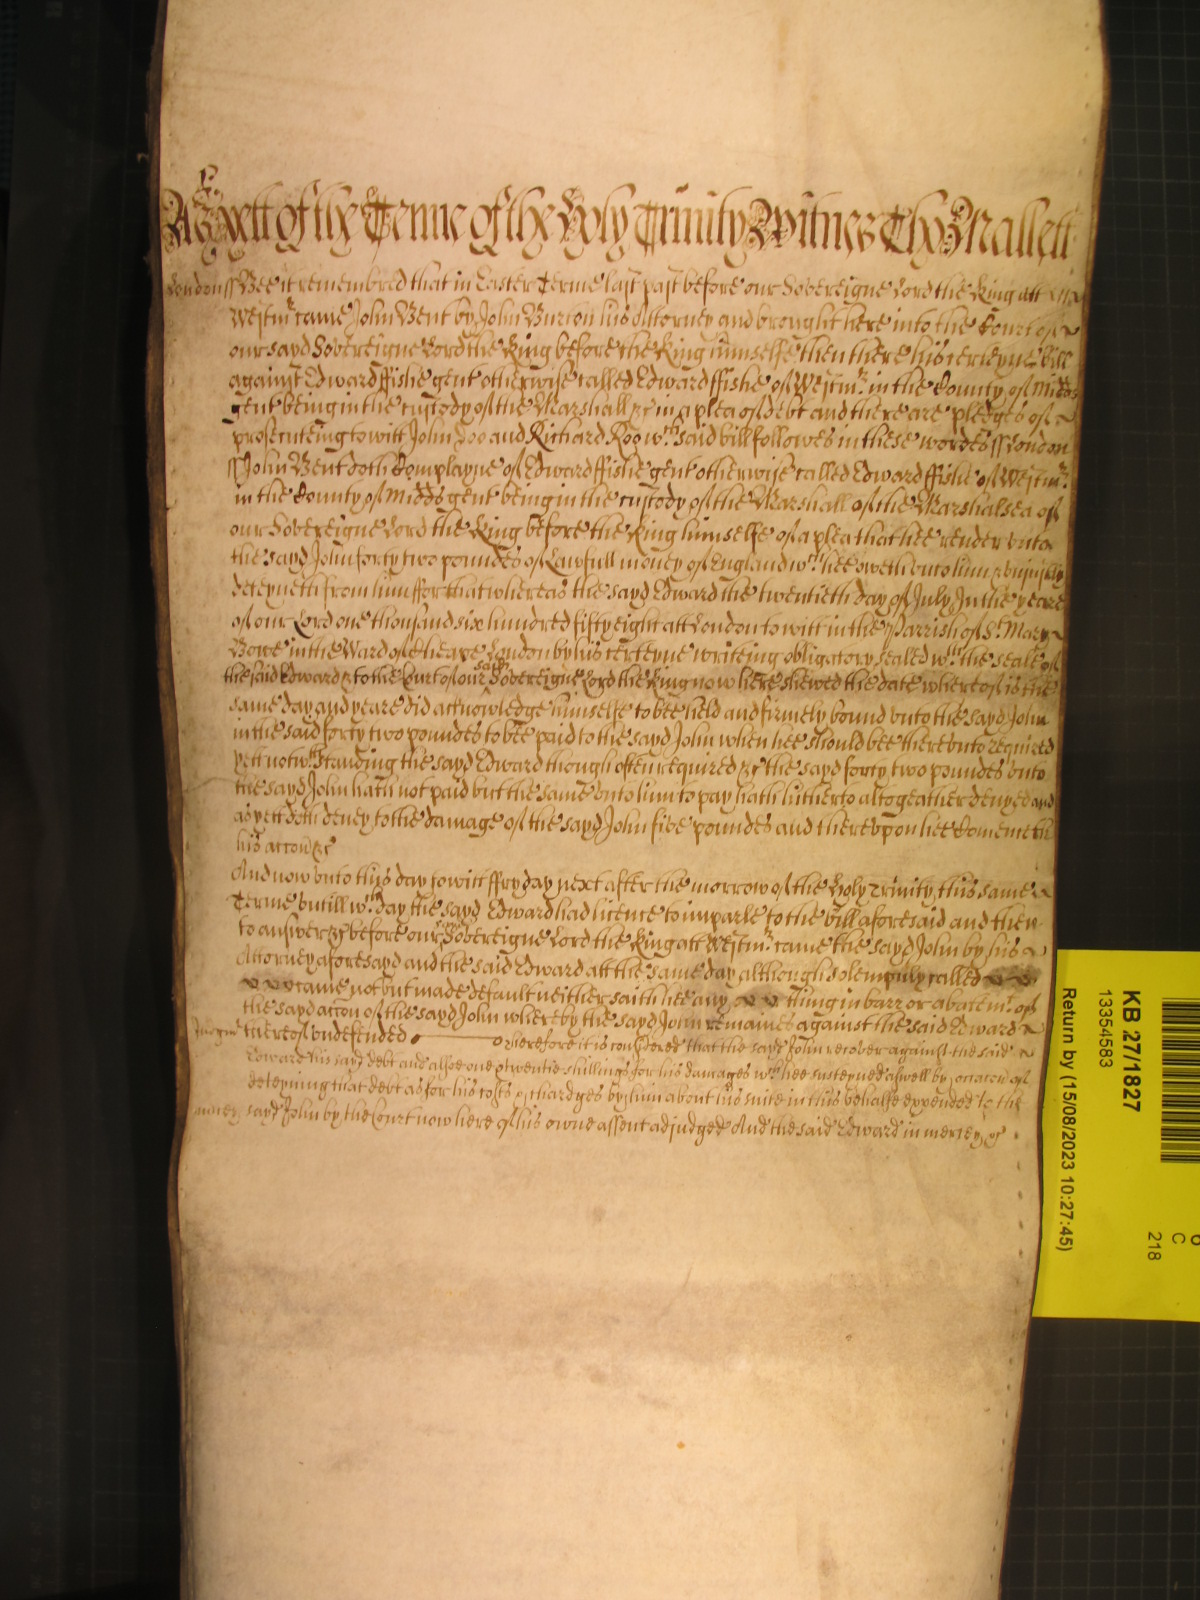 As yett of the Terme of the Holy Trinity Witnes Tho Mallett
London ss Bee it remembred that in Easter Terme last past before our Sovereigne Lord the King att
Westmr came John Bent by John Burton his Attorney and brought here into the Court of
our sayd Sovereigne Lord the King before the King himselfe then there his certeyne bill
against Edward ffishe gent otherwise called Edward ffishe of Westmr in the County of Midds
gent being in the custody of the Marshall &c in a plea of debt and there are pledges of
prosecuteing to witt John Doo and Richard Roo wch said bill followes in these wordes ss London
ss John Bent doth Complayne of Edward ffishe gent otherwise called Edward ffishe of Westmr
in the County of Midds gent being in the custody of the Marshall of the Marshalsea of
our Sovereigne Lord the King before the King himselfe of a plea that hee render unto
the sayd John forty two poundes of Lawfull money of England wch hee oweth unto him & uniustly
deteyneth from him ffor that whereas the sayd Edward the twentieth day of July In the yeare
of our Lord one thousand six hundred fifty eight att London to witt in the Parrish of St Mary
Bowe in the Ward of Cheape London by his certeyne writeing obligatory sealed wth the seale of
the said Edward & to the Curt of our said Sovereigne Lord the King now here shewed the date whereof is the
same day and yeare did acknowledge himselfe to bee held and firmely bound unto the sayd John
in the said forty two poundes to bee paid to the sayd John when hee should bee thereunto required
yett notwthstanding the sayd Edward though often required &c the sayd forty two poundes unto
the sayd John hath not paid but the same unto him to pay hath hitherto altogeather denyed and
as yett doth deney to the damage of the sayd John five poundes and thereupon hee Comenceth
his accon &c
And now unto this day to witt ffryday next after the morrow of the Holy Trinity this same
Terme untill wch day the sayd Edward had licence to imparle to the bill aforesaid and then
to answer &c before our said Sovereigne Lord the King att Westmr came the sayd John by his
Attorney aforesayd and the said Edward att the same day although solempnly called
came not but made default neither saith hee any thing in barr or abatemt of
the sayd accon of the sayd John whereby the sayd John remaines against the said Edward
Judgmt thereof undefended Wherefore it is considered that the sayd John recover against the said
Edward his sayd debt and alsoe one & twentie shillings for his damages wch hee susteyned aswell by occacon of
deteyning that debt as for his costs & chardges by him about his suite in this behalfe expended to the
mercy sayd John by the Court now here of his owne assent adjudged And the said Edward in mercy &c
KB 27/1827
13354583
Return by (15/08/2023 10:27:45)
6
C
218